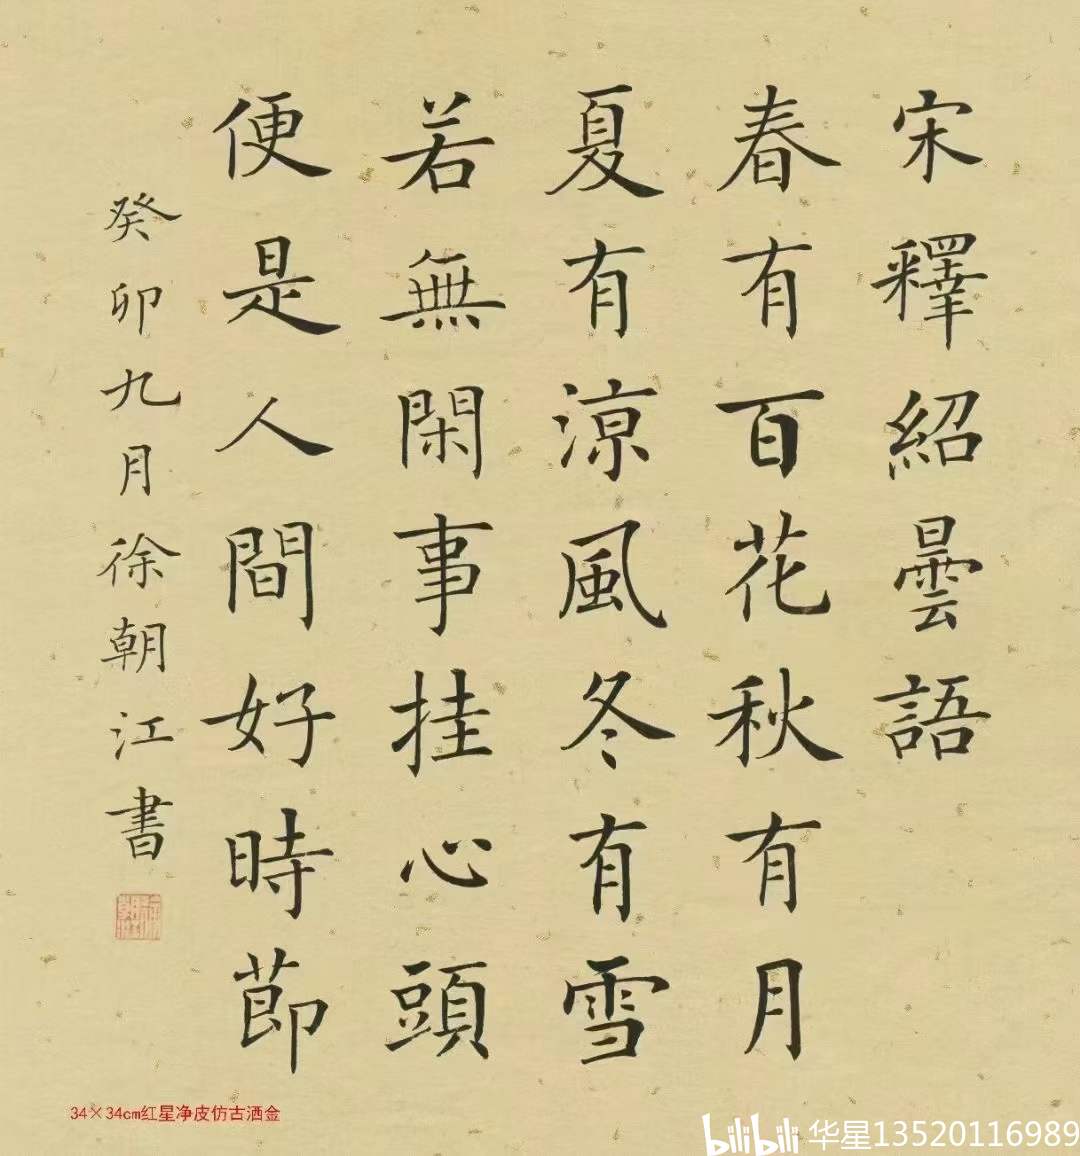 宋釋紹曇語
春有百花秋有月
夏有涼風冬有雪
若無閑事挂心頭
便是人間好時節
癸卯九月徐朝江書
34×34cm红星净皮仿古洒金
bilibili 华星13520116989